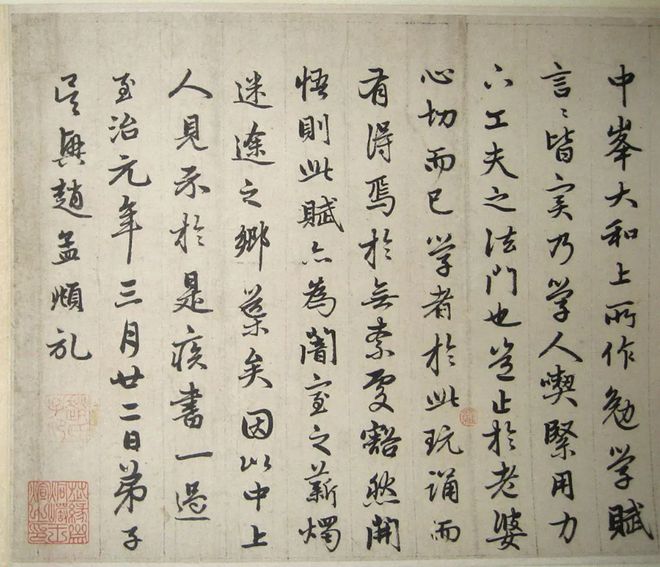 中峯大和上所作勉学賦
言〻皆实乃学人喫緊用力
下工夫之法門也豈止於老婆
心切而已学者於此玩誦而
有得焉於無索處豁然開
悟則此賦亦為闇室之薪燭
迷途之鄉導矣因以中上
人見示於是疾書一過
至治元年三月廿二日弟子
吳興趙孟頫禮